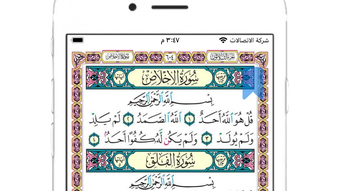 شركة الاتصالات ٣:٤٧ م
سورة الإخلاص ٦٠٤
سُورَةُ الإِخْلَاصِ
بِسْمِ اللَّهِ الرَّحْمَٰنِ الرَّحِيمِ
قُلْ هُوَ اللَّهُ أَحَدٌ ١ اللَّهُ الصَّمَدُ ٢ لَمْ يَلِدْ
وَلَمْ يُولَدْ ٣ وَلَمْ يَكُن لَّهُ كُفُوًا أَحَدٌ ٤
سُورَةُ الفَلَقِ
بِسْمِ اللَّهِ الرَّحْمَٰنِ الرَّحِيمِ